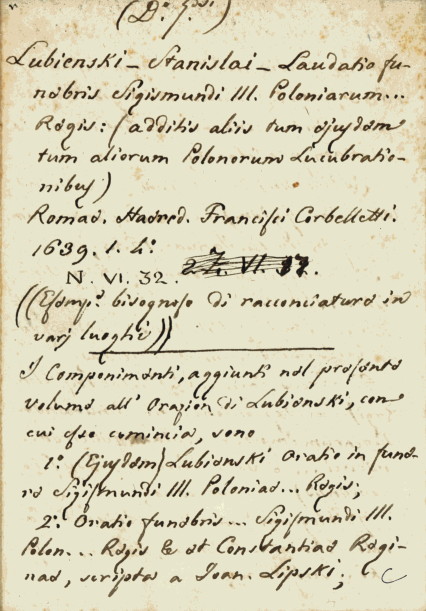 (D.
Lubienski - Stanislai - Laudatio fu-
nebris Sigismundi III. Poloniarum...
Regis: (additis aliis tum ejusdem
tum aliorum Polonorum Lucubratio-
nibus)
Romae. Haered. Francisci Corbelletti.
1639. 1. 4.°
N. VI. 32. Z. VI. 32.
((Esemp.e bisognoso di racconciature in
varj luoghi))
I Componimenti, aggiunti nel presente
volume all' Orazion di Lubienski, con
cui esso comincia, sono
1.° (Ejusdem) Lubienski Oratio in fune-
re Sigismundi III. Poloniae... Regis;
2.° Oratio funebris... Sigismundi III.
Polon... Regis & et Constantiae Regi-
nae, scripta a Joan. Lipski;